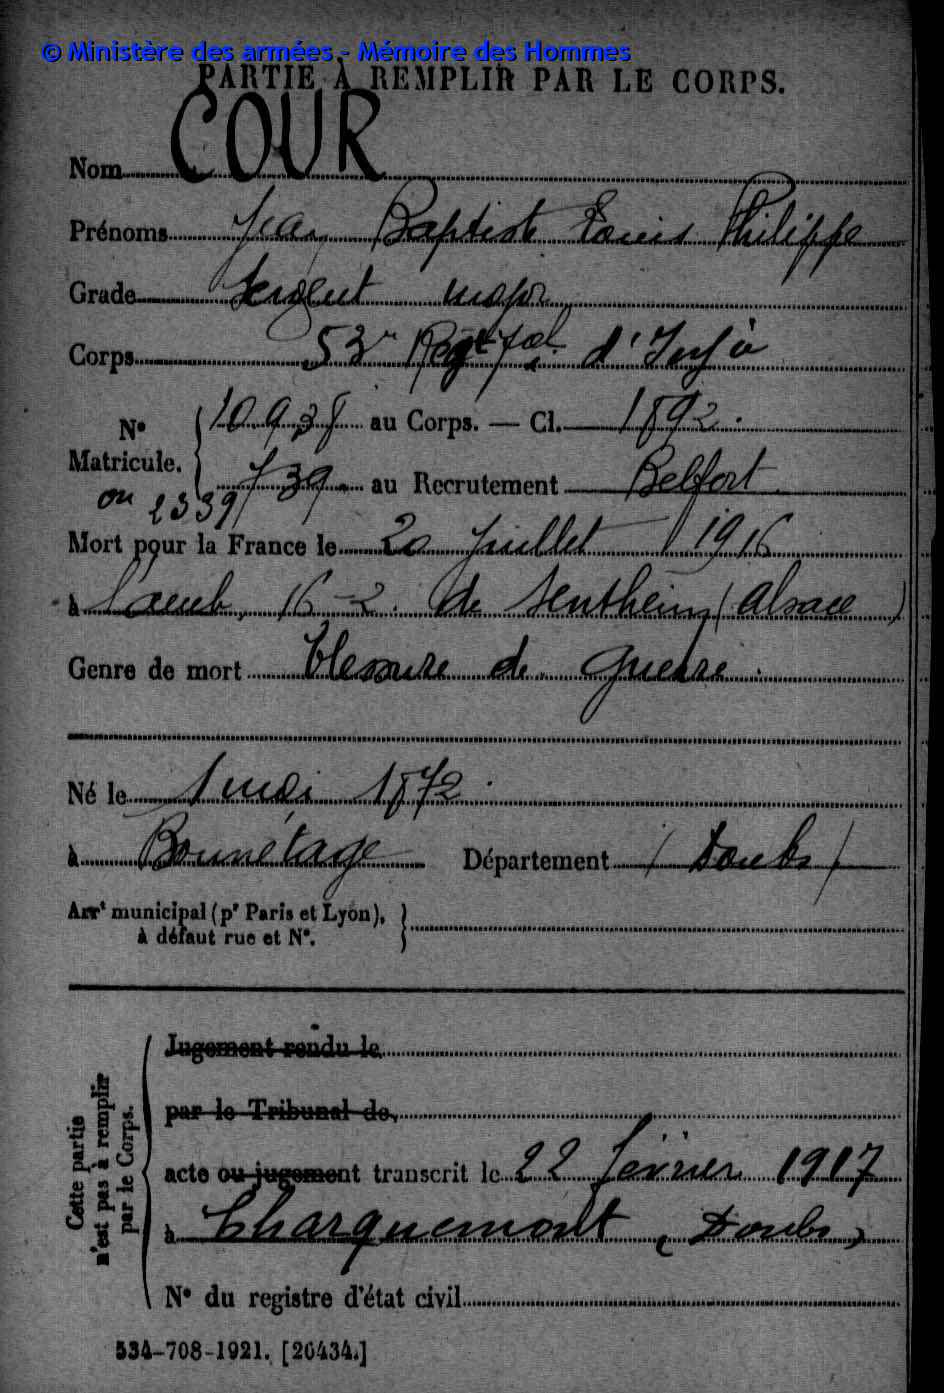 © Ministère des armées - Mémoire des Hommes
PARTIE À REMPLIR PAR LE CORPS.
Nom COUR
Prénoms Jean Baptiste Louis Philippe
Grade Sergent major
Corps 53e Régt d'Infie
N° Matricule. 10938 au Corps. — Cl. 1892.
739. au Recrutement Belfort
ou 2339
Mort pour la France le 20 Juillet 1916
à l'amb. 16-2. de Sentheim (Alsace)
Genre de mort blessure de guerre.
Né le 1 mai 1872.
à Bonnétage Département (Doubs)
Arrt municipal (pr Paris et Lyon),
à défaut rue et N°.
Cette partie
n'est pas à remplir
par le Corps.
Jugement rendu le
par le Tribunal de
acte ou jugement transcrit le 22 février 1917
à Charquemont (Doubs)
N° du registre d'état civil
534-708-1921. [26434.]